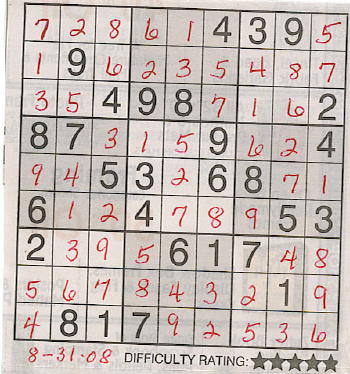 7 2 8 6 1 4 3 9 5
1 9 6 2 3 5 4 8 7
3 5 4 9 8 7 1 6 2
8 7 3 1 5 9 6 2 4
9 4 5 3 2 6 8 7 1
6 1 2 4 7 8 9 5 3
2 3 9 5 6 1 7 4 8
5 6 7 8 4 3 2 1 9
4 8 1 7 9 2 5 3 6
8-31-08 DIFFICULTY RATING: ★★★★★